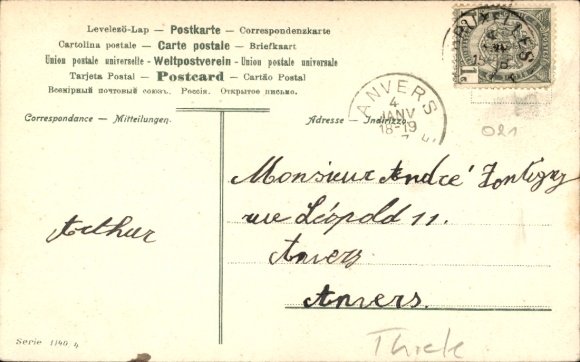 Levelezö-Lap — Postkarte — Correspondenzkarte
Cartolina postale — Carte postale — Briefkaart
Union postale universelle — Weltpostverein — Union postale universale
Tarjeta Postal — Postcard — Cartão Postal
Всемірный почтовый союзъ. Россія. Открытое письмо.
BRUXELLES
1
ANVERS
4
JANV
18-19
Correspondance — Mitteilungen.
Adresse — Indirizzo
021
Monsieur André Fontigny
rue Léopold 11.
Arthur
Anvers
Anvers.
Serie 1140 4
Thiele